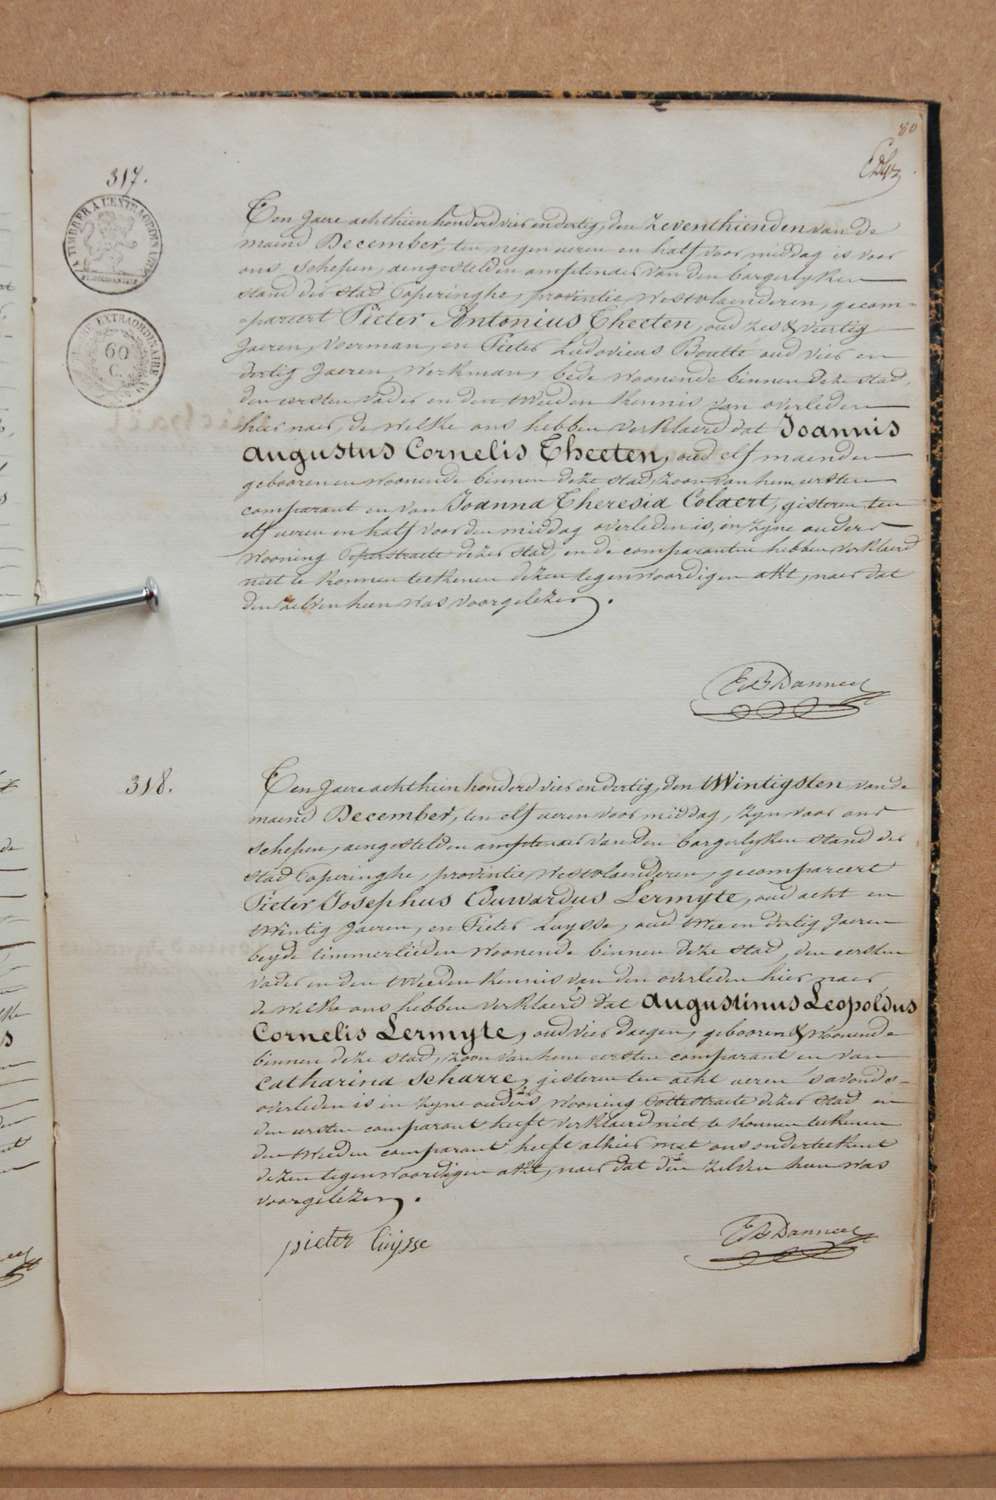 80
317.
TIMBRE A L'EXTRAORDINAIRE
EXTRAORDINAIRE
60
C.
Een Jaere achthien honderd vier en dertig, den Zeventhienden van de
maend December, ten negen ueren en half voor middag is voor
ons Schepen, aengestelden amptenaer van den borgerlyken
stand der stad Poperinghe, provintie Westvlaenderen, gecom-
-pareert Pieter Antonius Theeten, oud zes & viertig
Jaeren, Voerman, en Pieter Ludovicus Boutte oud vier en
dertig Jaeren, Werkman, bede woonende binnen deze stad,
den eersten vader en den tweeden kennis van overleden
hier naer, de welke ons hebben verklaerd dat Joannis
Augustus Cornelis Theeten, oud elf maenden
gebooren en woonende binnen deze stad, zoon van hem eersten
comparant en van Joanna Theresia Colaert, gisteren ten
elf ueren en half voor den middag overleden is, en zyne ouders
Wooning Peperstraete dezer stad en de comparanten hebben verklaerd
niet te konnen teekenen dezen tegenwoordigen akt, naer dat
den zelven hun was voorgelezen.
318.
Een Jaere achthien honderd vier en dertig, den twintigsten van de
maend December, ten elf ueren voor middag, zyn voor ons
Schepen, aengestelden amptenaer van den borgerlyken stand der
stad Poperinghe, provintie Westvlaenderen, gecompareert
Pieter Josephus Eduwardus Lermyte, oud acht en
twintig Jaeren, en Pieter Luysse, oud twee en dertig Jaeren
beyde timmerlieden woonende binnen deze stad, den eersten
vader en den tweeden kennis van den overleden hier naer
de welke ons hebben verklaerd dat Augustinus Leopoldus
Cornelis Lermyte, oud vier daegen, gebooren & woonende
binnen deze stad, zoon van hem eersten comparant en van
Catharina Scharre, gisteren ten acht ueren s'avonds
overleden is in zyne ouders wooning Pottestraete dezer stad en
den eersten comparant heeft verklaerd niet te konnen teekenen
den tweeden comparant heeft alhier met ons onderteekent
dezen tegenwoordigen akt, naer dat den zelven hun was
voorgelezen.
pieter luysse